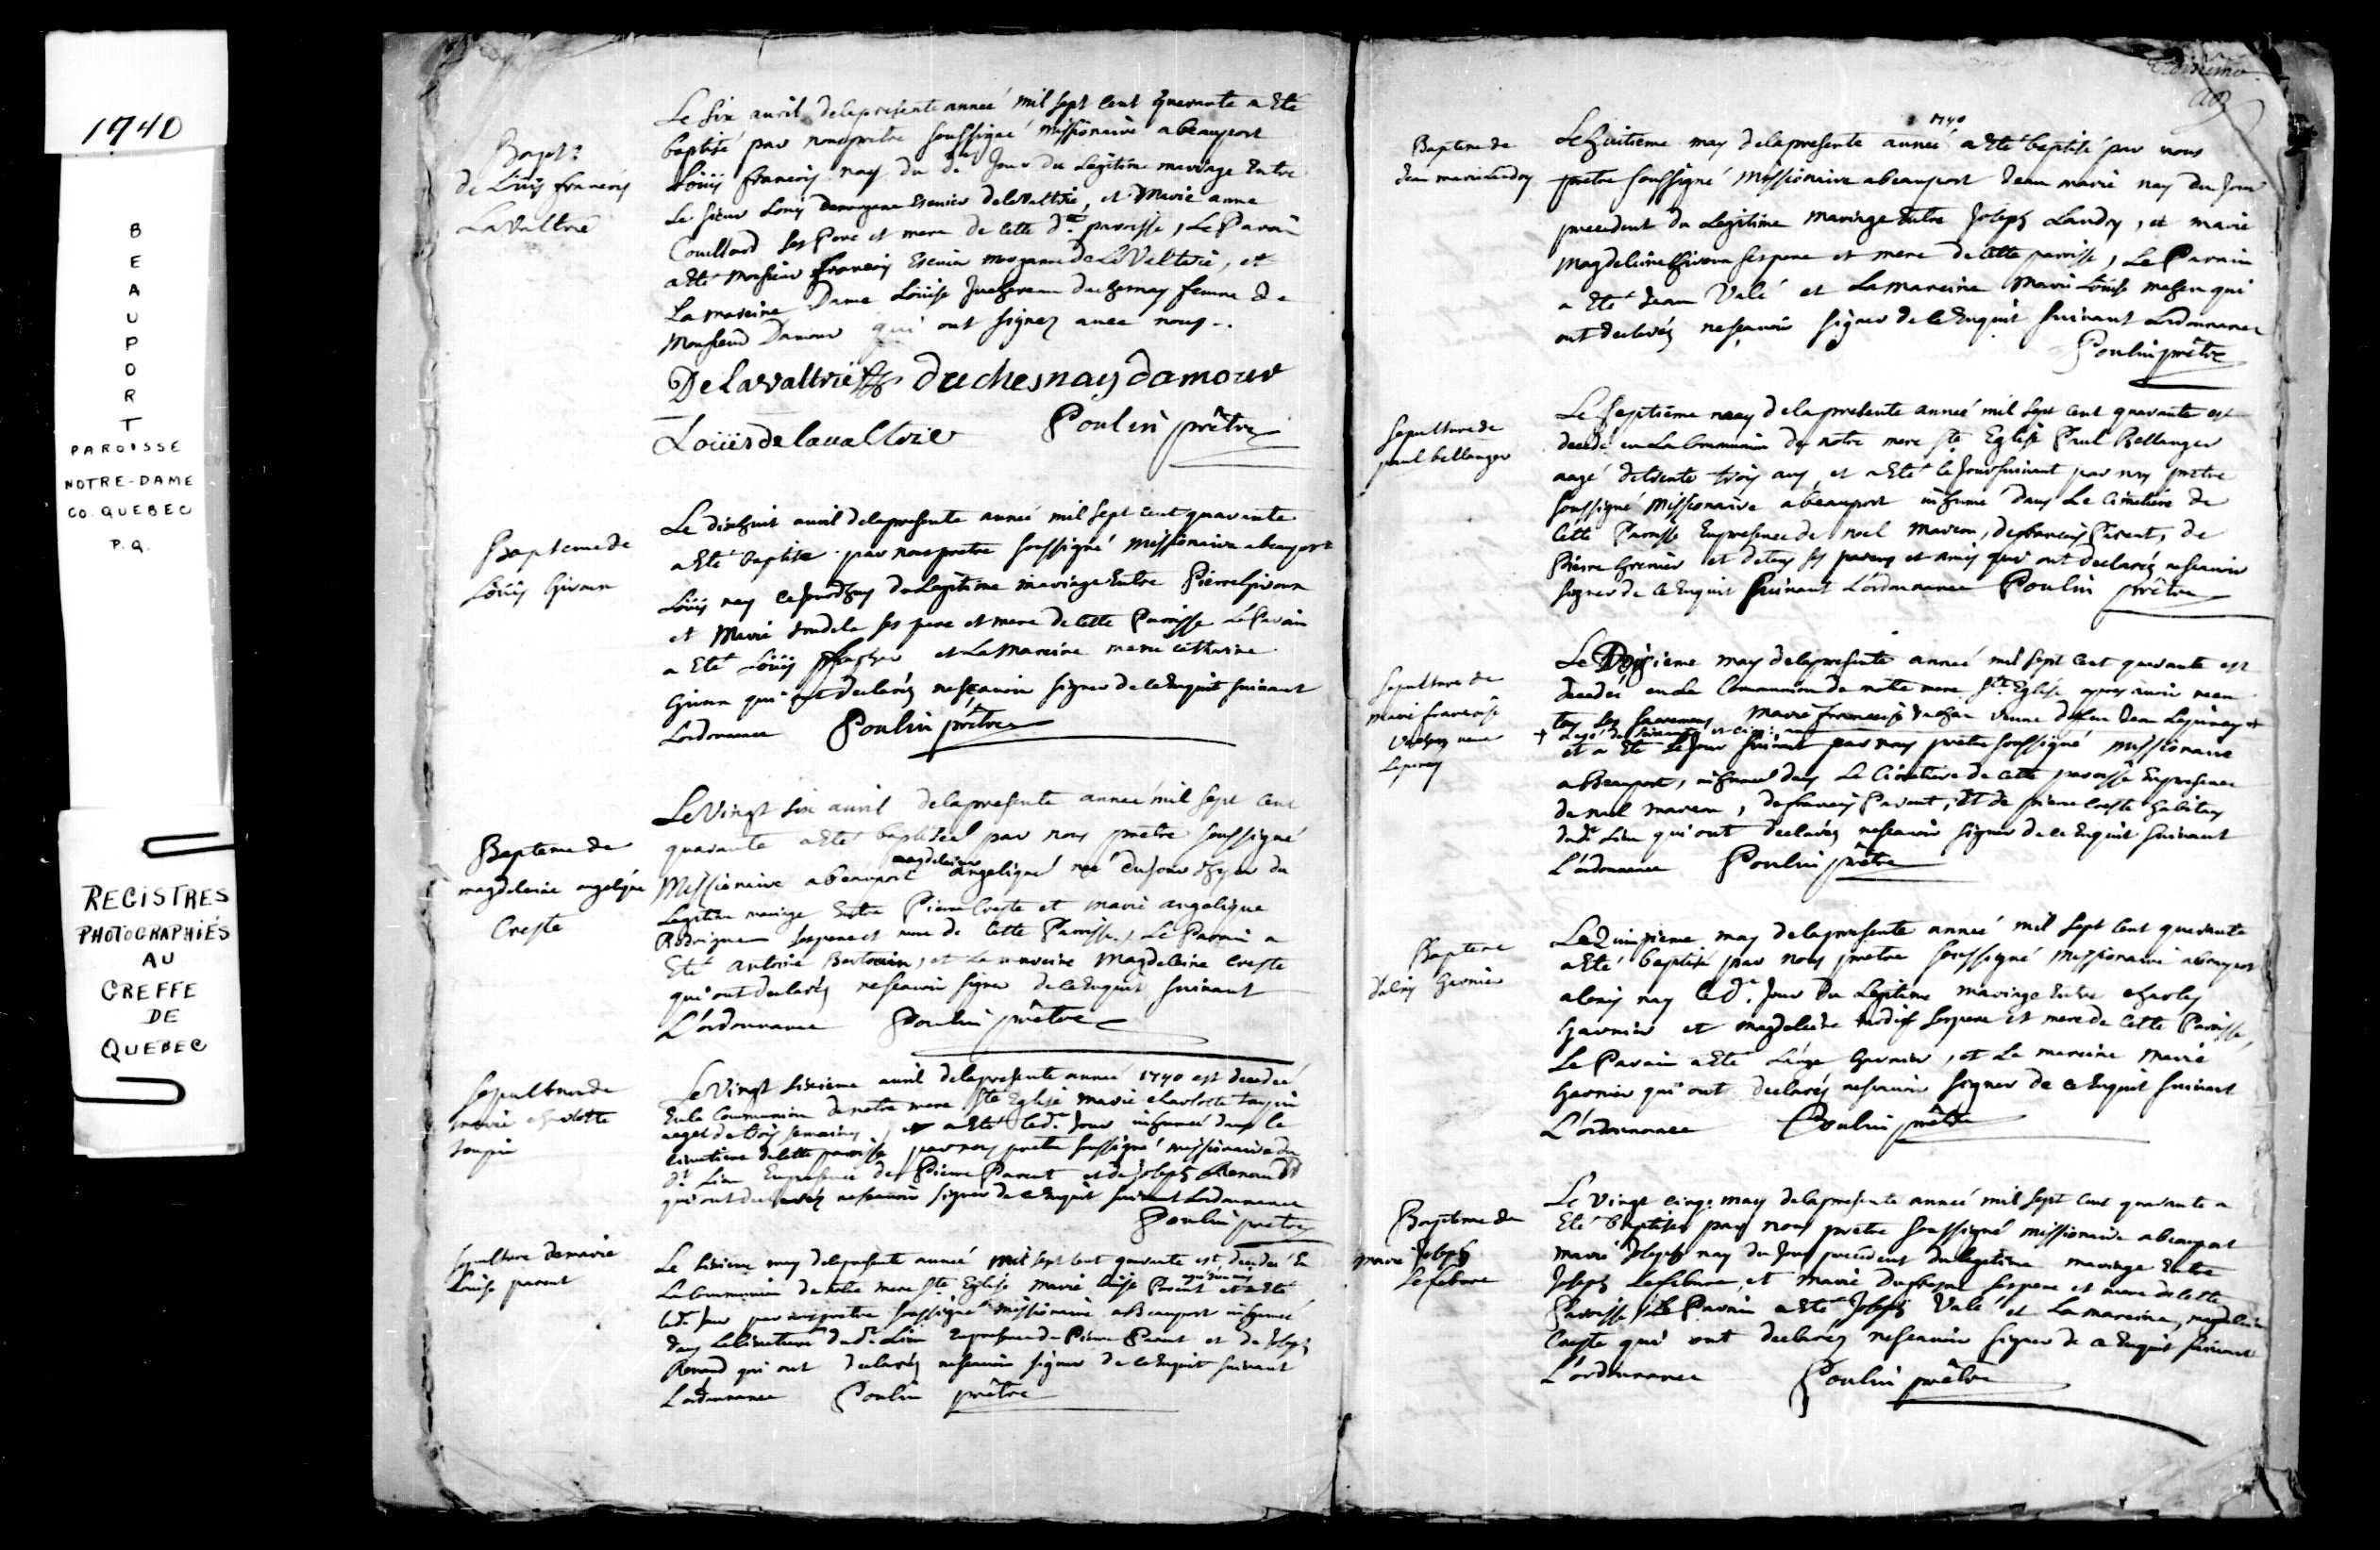 1740
B
E
A
U
P
O
R
T
PAROISSE
NOTRE-DAME
CO. QUEBEC
P.Q.
REGISTRES
PHOTOGRAPHIÉS
AU
GREFFE
DE
QUEBEC
Bapt:
de Loüis francois
LaValtrie
Le Six auril de la presente anneé mil sept cent quarante a Eté
baptisé par nous pretre soussigné missionaire a beauport
Loüis francois nay du d. Jour du Legitime mariage Entre
Le sieur Louis Escuier de laValtrie, et Marie anne
Couillard ses Pere et mere de cette d.tte paroisse, Le Parain
a Eté Monsieur francois Escuier morgane de LaValterie, et
La mareine Dame Loüise Juchereau duchesnay femme de
Monsieur Damour qui ont signez auec nous.
De Lavaltrie duchesnay damour
Loüis de lavaltrie Poulin prêtre
Bapteme de
Loüis Giroux
Le dixhuit auril de la presente anneé mil sept cent quarante
a Eté baptise par nous pretre soussigné Missionaire a beauport
Loüis nay ce jourdhuy du Legitime mariage Entre Pierre Giroux
et Marie ses pere et mere de cette Paroisse Le Parain
a Eté Loüis et La Mareine marie catherine
Giroux qui ont declaréz ne scauoir signer de ce Enquit suiuant
Lordonnance Poulin prêtre
Bapteme de
magdeleine angelique
Creste
Le Vingt Six auril de la presente anneé mil sept cent
quarante a Eté baptiseé par nous pretre soussigné
magdeleine
Missionaire a beauport angelique neé du jour d'hyer du
Legitime mariage Entre Pierre Creste et marie angelique
Rodrigue ses pere et mere de cette Paroisse, Le Parain a
Eté antoine, et La mareine Magdeleine creste
qui ont declaréz ne scauoir signer de ce Enquit suiuant
L'ordonnance Poulin prêtre
Sepulture de
marie charlotte
toupin
Le Vingt Sixieme auril de la presente anneé 1740 est decedeé
En la Communion de notre mere Ste Eglise marie charlotte toupin
ageé de trois semaines, et a Eté led. Jour inhumeé dans le
cimetiere de cette paroisse par nous pretre soussigné missionaire du
dt Lieu En presence de Pierre Parent et de Joseph Renaud
qui ont declaréz ne scauoir signer de ce Enquit suiuant Lordonnance
Poulin pretre
Sepulture de marie
Loüise parent
Le Sixieme may de la presente anneé mil sept cent quarante est decedeé En
La Communion de notre mere Ste Eglise Marie Loüise Parent et a Eté
led. Jour par nous pretre soussigné missionaire a Beauport inhumeé
dans Le cimetiere du dt Lieu En presence de Pierre Parent et de Joseph
Renaud qui ont declaréz ne scauoir signer de ce Enquit suiuant
L'ordonnance Poulin prêtre
Troisieme
1740
Bapteme de
Jean marie Landry
Le huitieme may de la presente anneé a Eté baptisé par nous
pretre soussigné Missionaire a beauport Jean marie nay du Jour
precedent du Legitime mariage Entre Joseph Landry, et marie
Magdeleine Giroux ses pere et mere de cette paroisse, Le Parain
a Eté Jean Valé et La mareine Marie Loüise maheu qui
ont declaréz ne scauoir signer de ce Enquit suiuant Lordonnance
Poulin prêtre
Sepulture de
paul bellanger
Le Septieme may de la presente anneé mil sept cent quarante est
decedé en La Communion de notre mere Ste Eglise Paul Bellanger
aagé de trente trois ans, et a Eté le Jour suiuant par nous pretre
soussigné Missionaire a beauport inhumé dans Le Cimetiere de
Cette Paroisse En presence de noel Marcou, de francois Parent, de
Pierre Grenier et de tous ses parens et amis qui ont declaréz ne scauoir
signer de ce Enquit suiuant L'ordonnance Poulin prêtre
Sepulture de
marie francoise
veuve
Lepinay
Le may de la presente anneé mil sept cent quarante est
decedeé en La Communion de notre mere Ste Eglise apres auoir receu
tous ses sacremens Marie francoise veuue de feu Jean Lepinay +
+ ageé de
et a Eté le Jour suiuant par nous pretre soussigné missionaire
a Beauport, inhumeé dans Le Cimetiere de cette paroisse En presence
de noel marcou, de francois Parent, et de pierre creste habitans
du dt Lieu qui ont declaréz ne scauoir signer de ce Enquit suiuant
L'ordonnance Poulin prêtre
Bapteme
d'alexis Garnier
Le Quinzieme may de la presente anneé mil sept cent quarante
a Eté baptisé par nous pretre soussigné missionaire a beauport
alexis nay le d. Jour du Legitime mariage Entre charles
Garnier et magdeleine ses pere et mere de cette Paroisse,
Le Parain a Eté Garnier, et La mareine Marie
Garnier qui ont declaréz ne scauoir signer de ce Enquit suiuant
L'ordonnance Poulin prêtre
Bapteme de
marie Joseph
Lefebvre
Le Vingt cinq. may de la presente anneé mil sept cent quarante a
Eté baptiseé par nous pretre soussigné missionaire a beauport
marie Joseph nay du Jour precedent du legitime mariage Entre
Joseph Lefebvre, et Marie Dufresne ses pere et mere de cette
Paroisse, Le Parain a Eté Joseph Valé et La mareine, magdeleine
Creste qui ont declaréz ne scauoir signer de ce Enquit suiuant
L'ordonnance Poulin prêtre